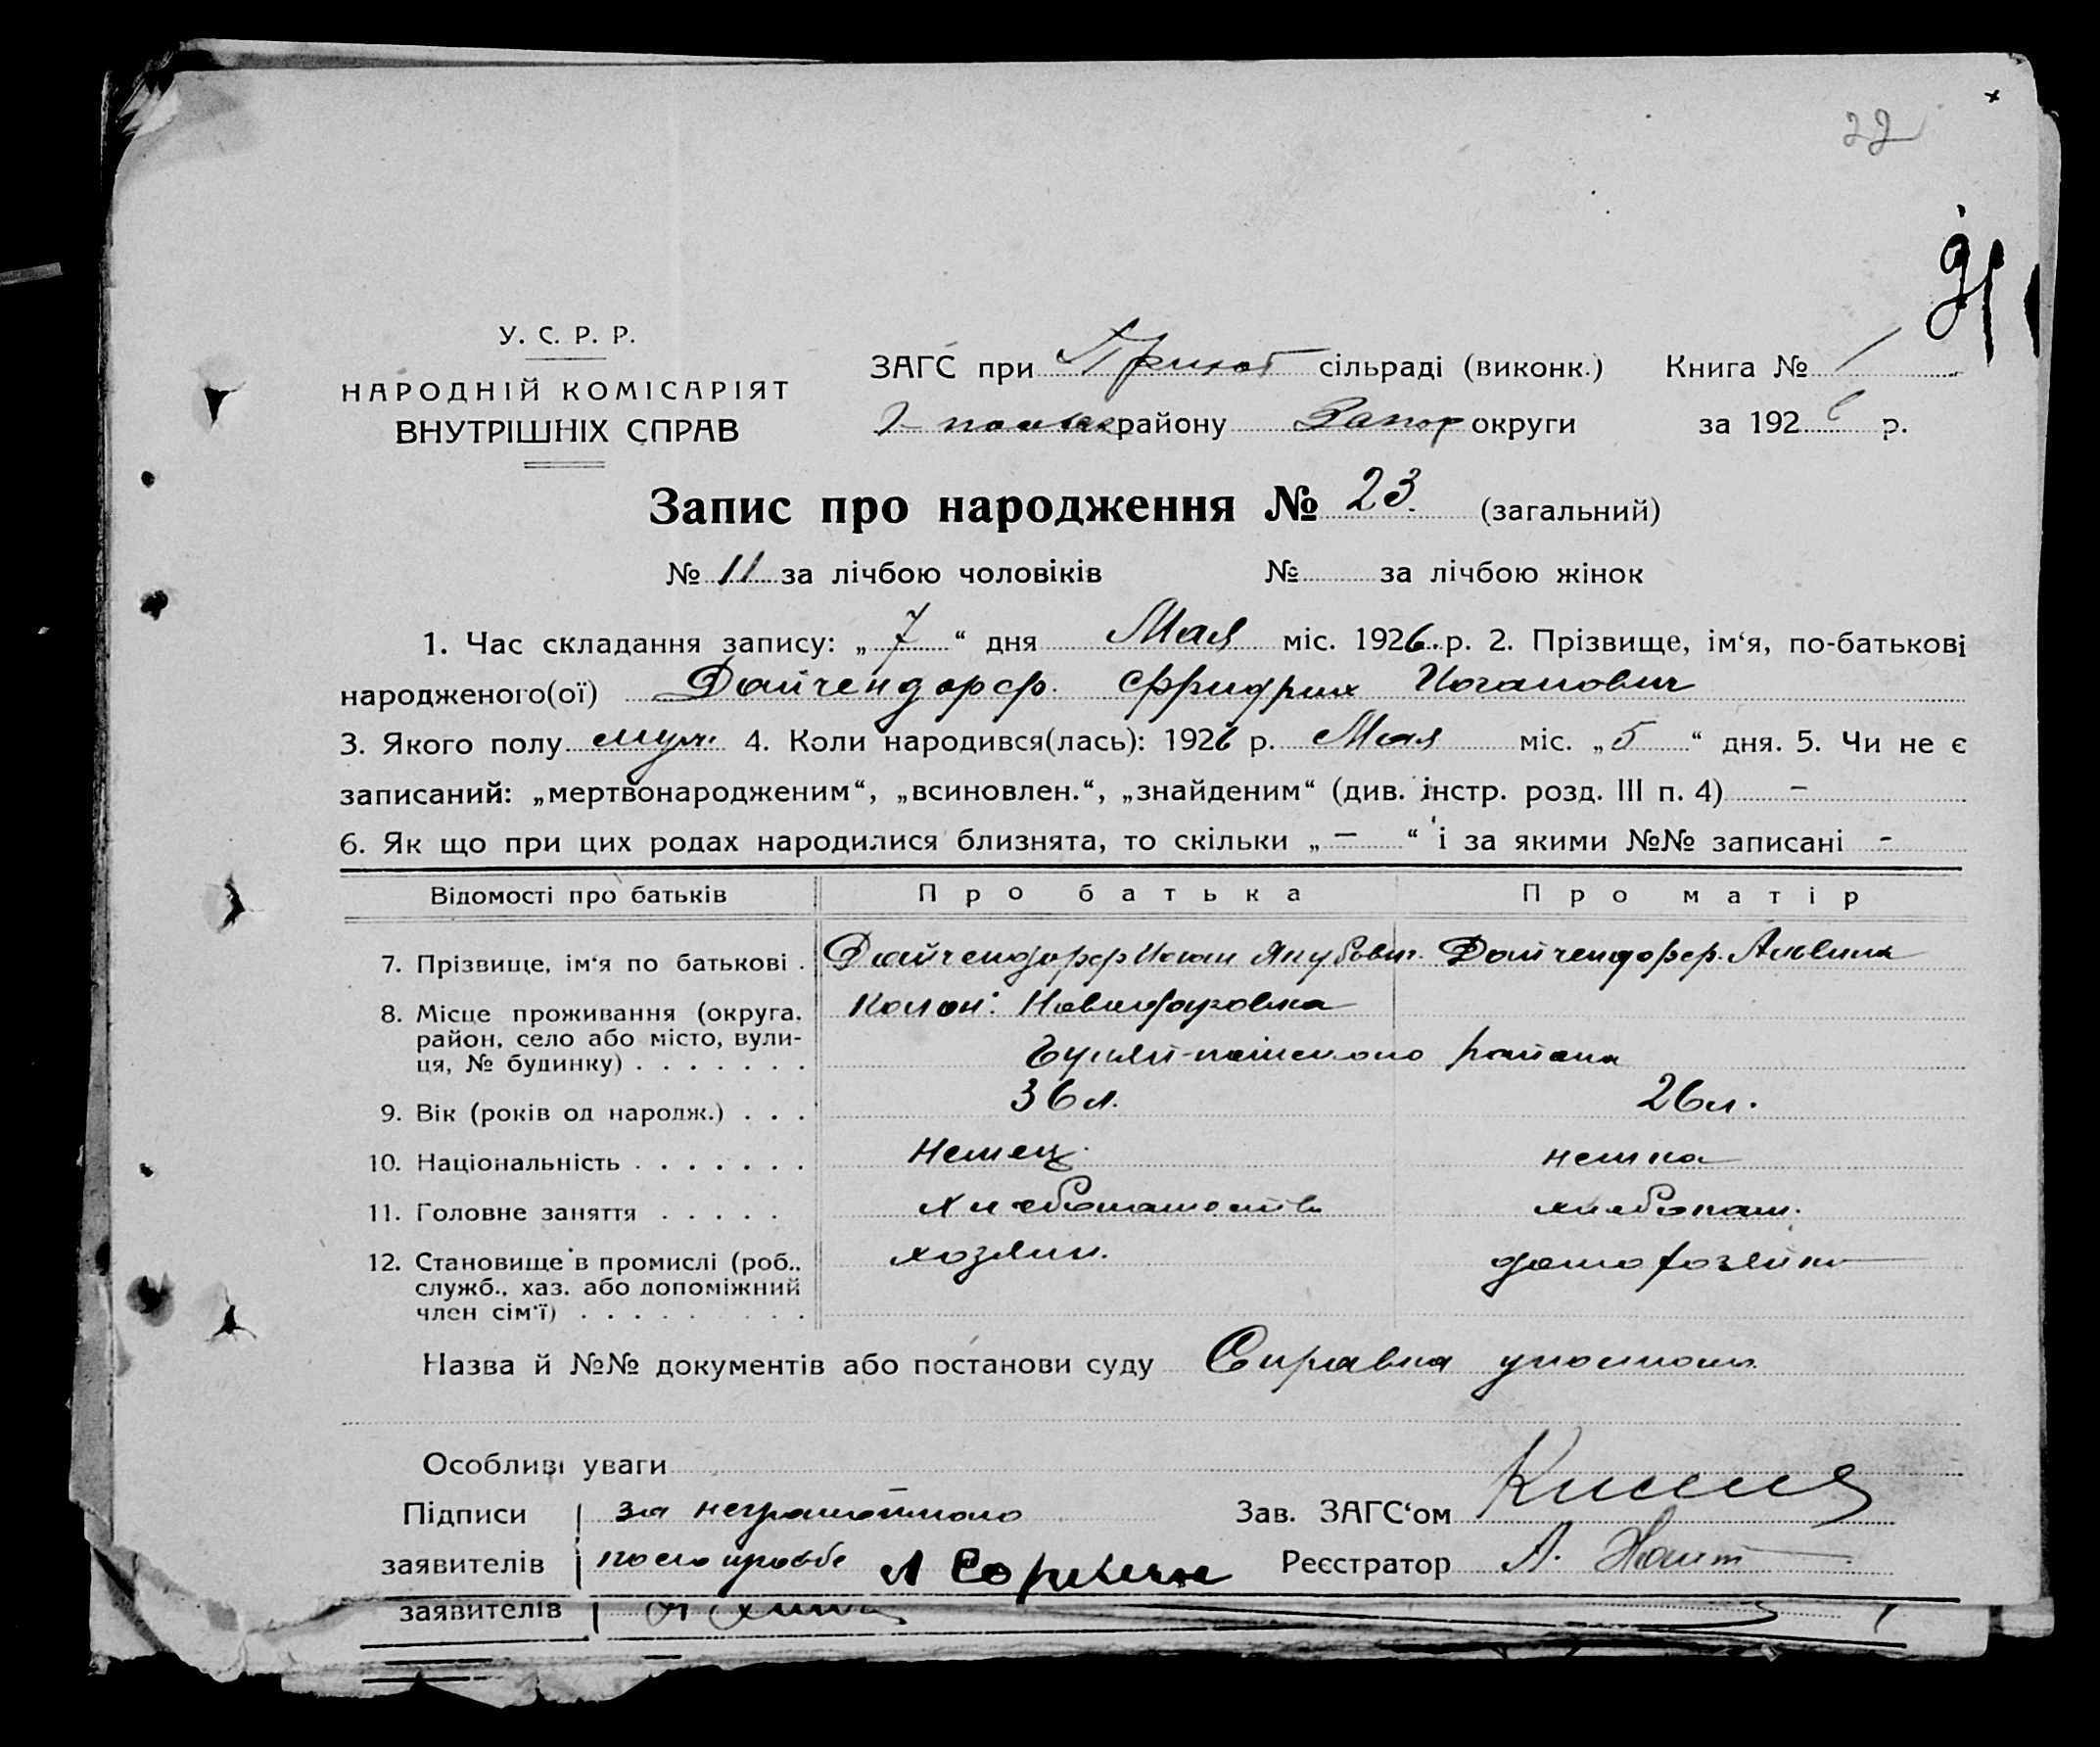 22
У. С. Р. Р.
НАРОДНІЙ КОМІСАРІЯТ
ВНУТРІШНІХ СПРАВ
ЗАГС при сільраді (виконк.) Книга № 1
району Запор округи за 1926 р.
Запис про народження № 23. (загальний)
№ 11 за лічбою чоловіків № за лічбою жінок
1. Час складання запису: „ 7 “ дня Мая міс. 1926 р. 2. Прізвище, ім‘я, по-батькові
народженого(ої) Дайчендорф. Фридрих Иоганович
3. Якого полу муж. 4. Коли народився(лась): 1926 р. Мая міс. „ 5 “ дня. 5. Чи не є
записаний: „мертвонародженим“, „всиновлен.“, „знайденим“ (див. інстр. розд. III п. 4) –
6. Як що при цих родах народилися близнята, то скільки „ – “ і за якими №№ записані -
Відомості про батьків Про батька Про матір
7. Прізвище, ім‘я по батькові . Дайчендорф Иоган Якубович. Дайчендорф. Альвина
8. Місце проживання (округа, Колон:
район, село або місто, вули-
ця, № будинку) . . . . . . . Гуляй-польского района
9. Вік (років од народж.) . . . 36 л. 26 л.
10. Національність . . . . . . . Немец. немка
11. Головне заняття . . . . . хлебопашество хлебопаш.
12. Становище в промислі (роб., хозяин. домохозяйка
служб., хаз. або допоміжний
член сім‘ї) . . . . . . . . .
Назва й №№ документів або постанови суду Справка
Особливі уваги
Підписи за неграмотного Зав. ЗАГС‘ом
заявителів по его просьбе Реєстратор А.
заявителів